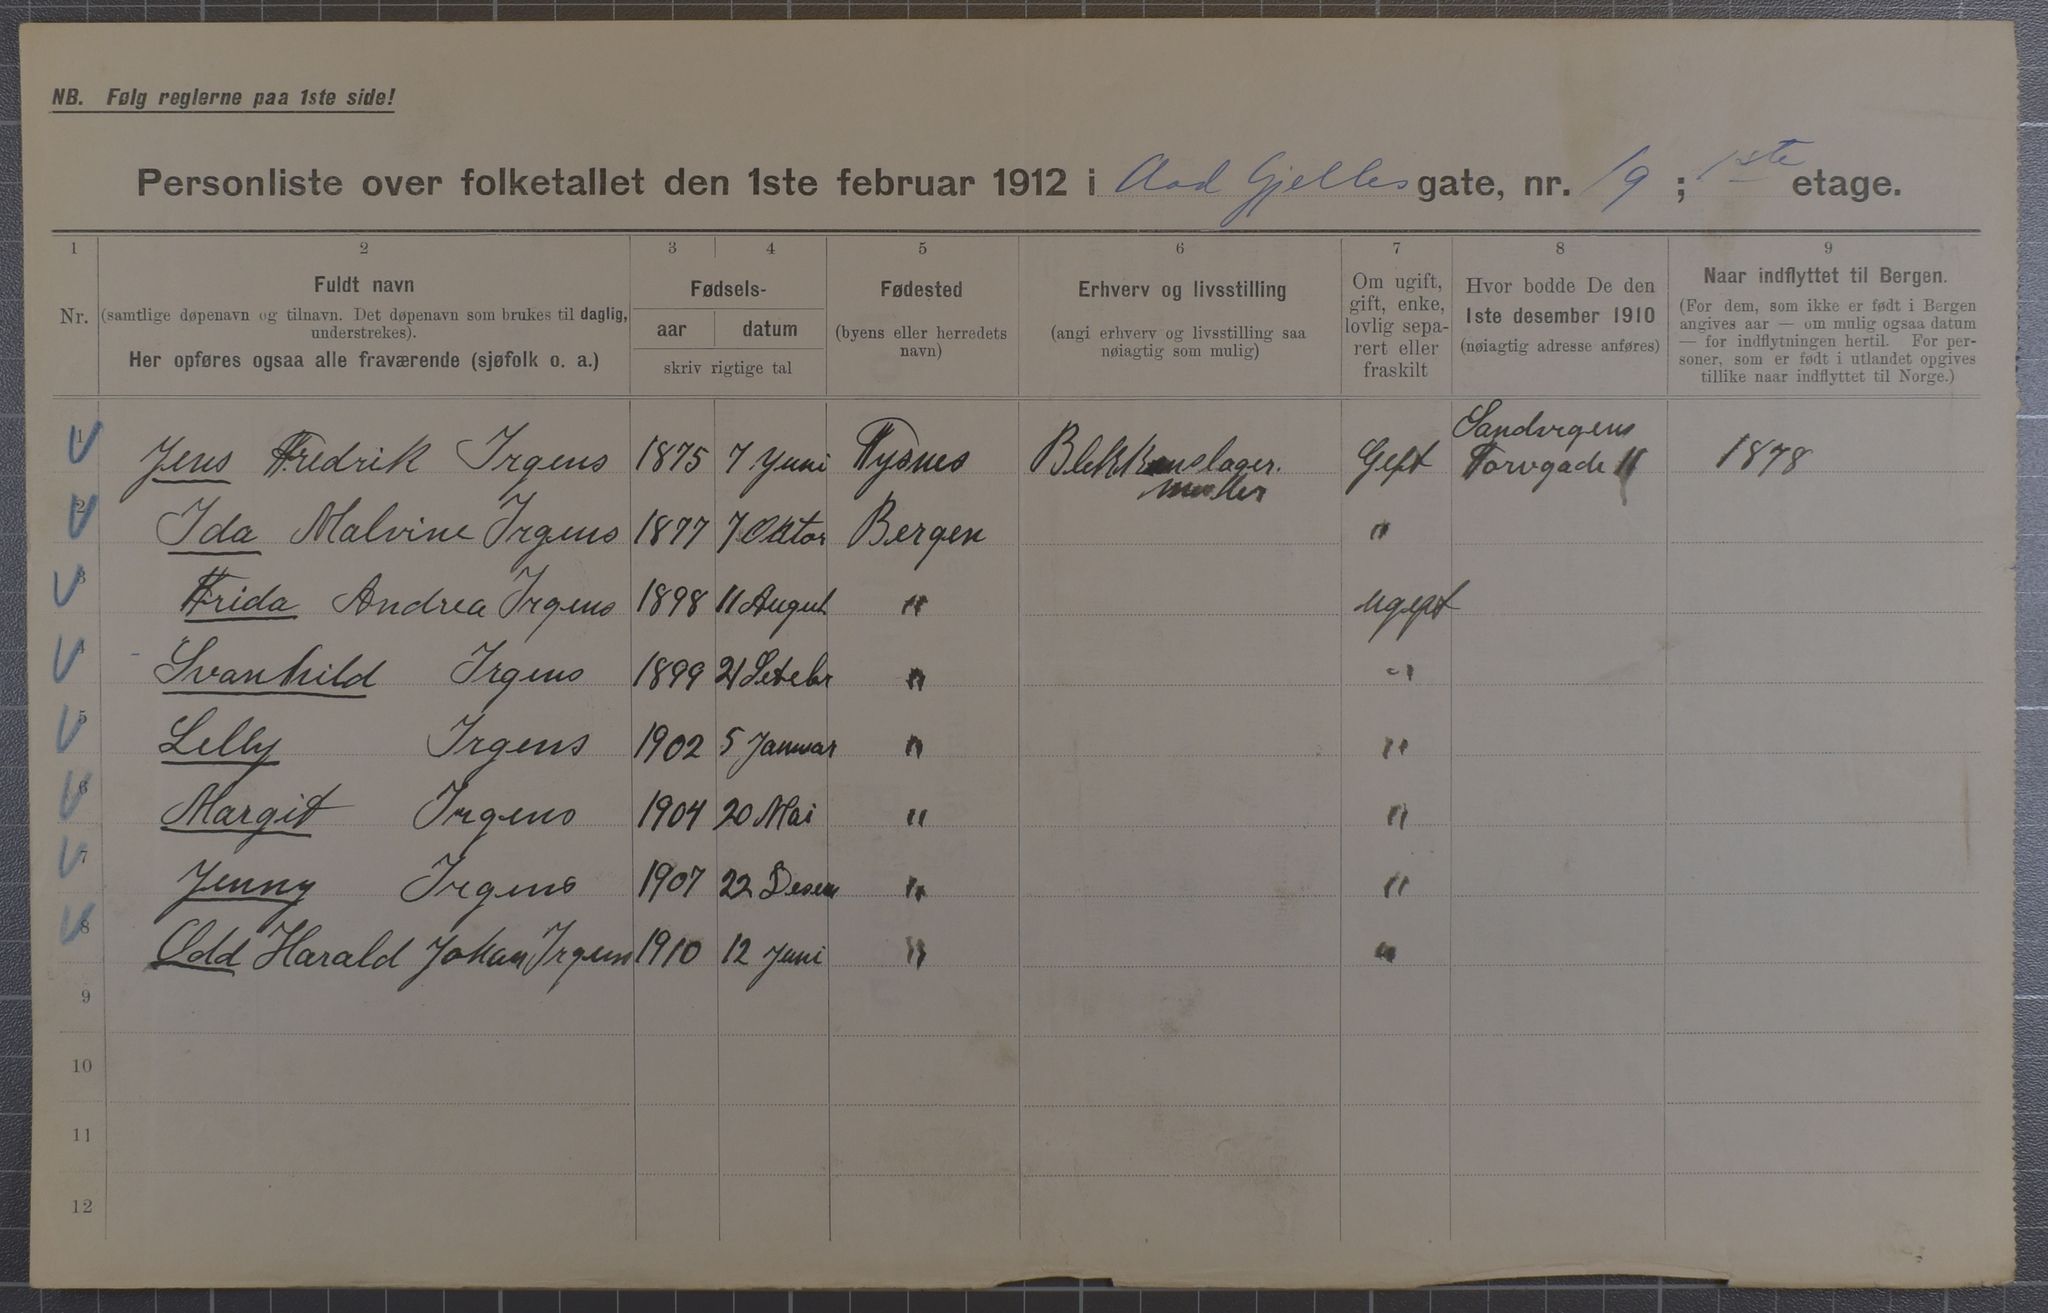 NB. Følg reglerne paa 1ste side!
Personliste over folketallet den 1ste februar 1912 i Aad Gjelles gate, nr. 19 ; 1ste etage.
1 2 3 4 5 6 7 8 9
Nr.
Fuldt navn
(samtlige døpenavn og tilnavn. Det døpenavn som brukes til daglig, understrekes).
Her opføres ogsaa alle fraværende (sjøfolk o. a.)
Fødsels-
aar datum
skriv rigtige tal
Fødested
(byens eller herredets navn)
Erhverv og livsstilling
(angi erhverv og livsstilling saa nøiagtig som mulig)
Om ugift,
gift, enke,
lovlig sepa-
rert eller
fraskilt
Hvor bodde De den
1ste desember 1910
(nøiagtig adresse anføres)
Naar indflyttet til Bergen.
(For dem, som ikke er født i Bergen
angives aar — om mulig ogsaa datum
— for indflytningen hertil. For per-
soner, som er født i utlandet opgives
tillike naar indflyttet til Norge.)
1 Jens Fredrik Irgens 1875 7 Juni Tysnes Gift Sandvigens Torvgade 11 1878
2 Ida Malvine Irgens 1877 7 Oktor Bergen "
3 Frida Andrea Irgens 1898 11 August " ugift
4 Svanhild Irgens 1899 21 "  "
5 Lelly Irgens 1902 5 Januar " "
6 Margit Irgens 1904 20 Mai " "
7 Jenny Irgens 1907 22 Desem " "
8 Odd Harald Johan Irgens 1910 12 Juni " "
9
10
11
12